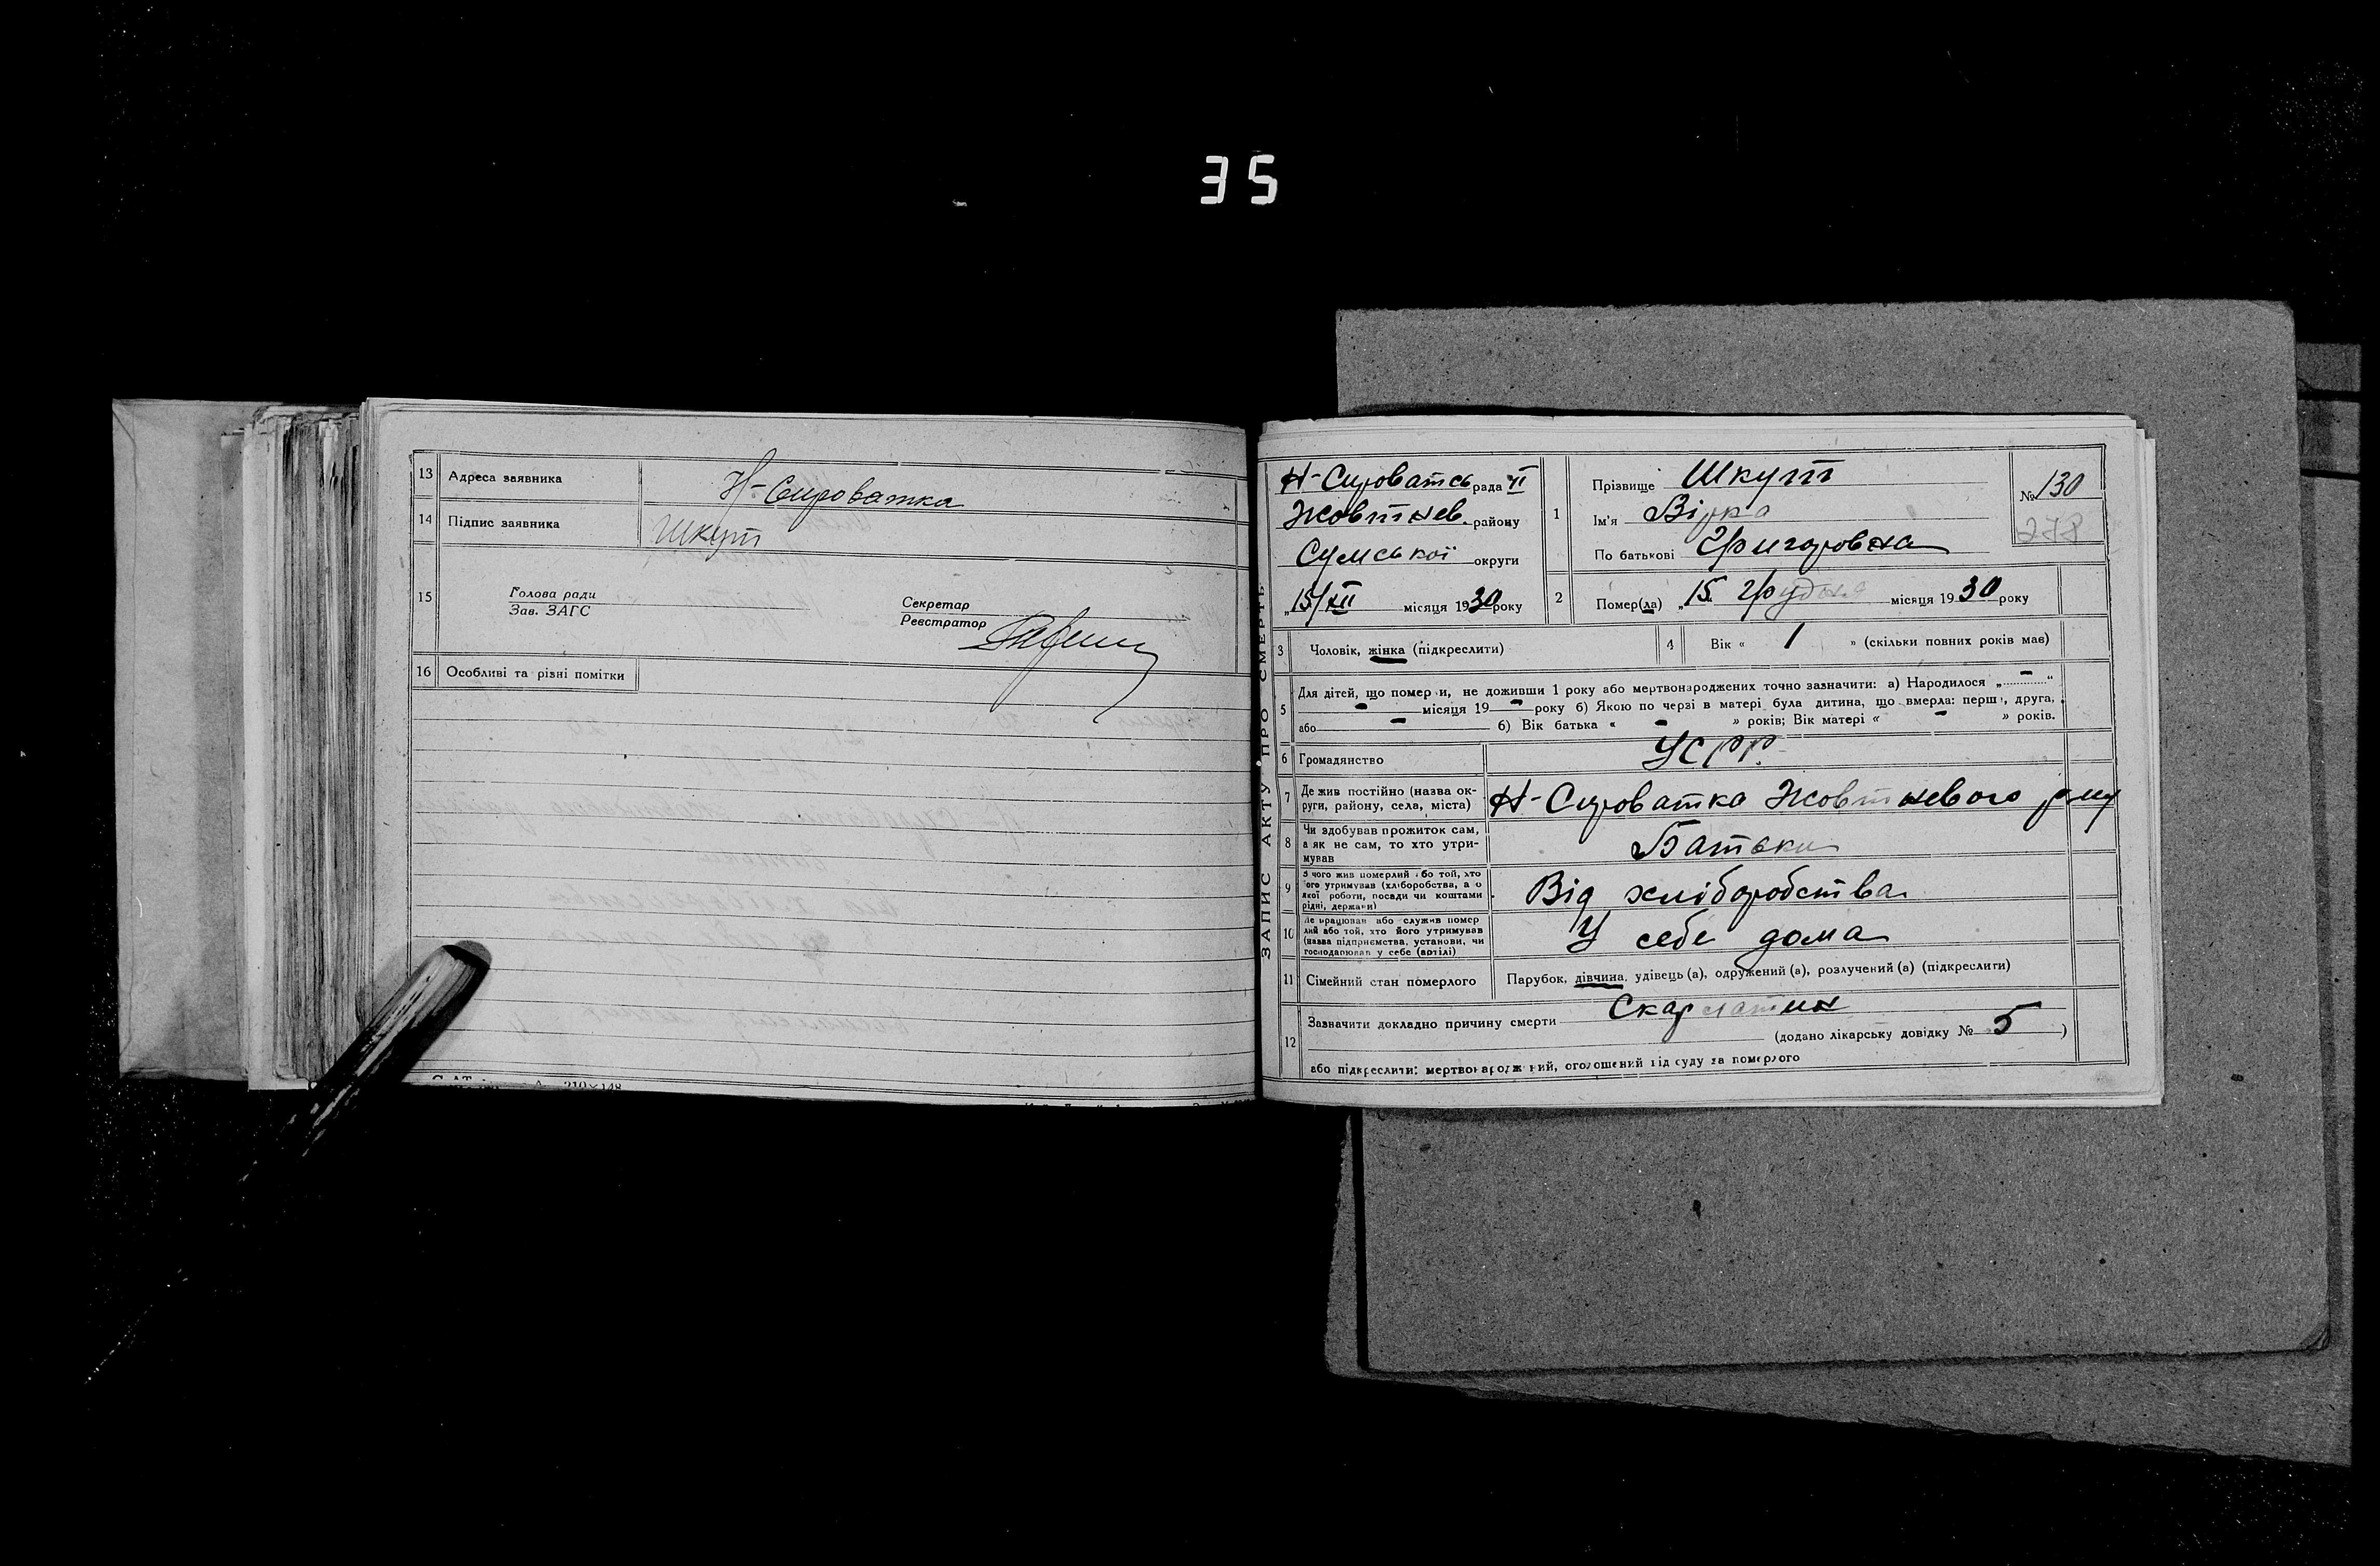 35
13 Адреса заявника Н-Сироватка
14 Підпис заявника Шкут
15 Голова ради
Зав. ЗАГС
Секретар
Реєстратор
16 Особливі та різні помітки
210×148
ЗАПИС АКТУ ПРО СМЕРТЬ
Н-Сироватсь рада II
Жовтнев. району
Сумської округи
„15/XII місяця 1930 року
1 Прізвище Шкут
Ім'я Вірка
По батькові Григоровна
№ 130
278
2 Помер(ла) „15. грудня місяця 1930 року
3 Чоловік, жінка (підкреслити)
4 Вік « 1 » (скільки повних років має)
5 Для дітей, що померли, не доживши 1 року або мертвонароджених точно зазначити: а) Народилося „ - “
- місяця 19 - року б) Якою по черзі в матері була дитина, що вмерла: перша, друга,
або - б) Вік батька « - » років; Вік матері « - » років.
6 Громадянство УСРР.
7 Де жив постійно (назва ок-
руги, району, села, міста) Н-Сироватка Жовтневого р-ну
8 Чи здобував прожиток сам,
а як не сам, то хто утри-
мував Батьки
9 З чого жив померлий або той, хто
його утримував (хліборобства, а о
якої роботи, посади чи коштами
рідні, держави) Від хліборобства
10 Де працював або служив помер
лий або той, хто його утримував
(назва підприємства, установи, чи
господарював у себе (артілі) У себе дома
11 Сімейний стан померлого Парубок, дівчина, удівець (а), одружений (а), розлучений (а) (підкреслити)
12 Зазначити докладно причину смерти Скарлатин
(додано лікарську довідку № 5 )
або підкреслити: мертвонароджений, оголошений від суду за померлого